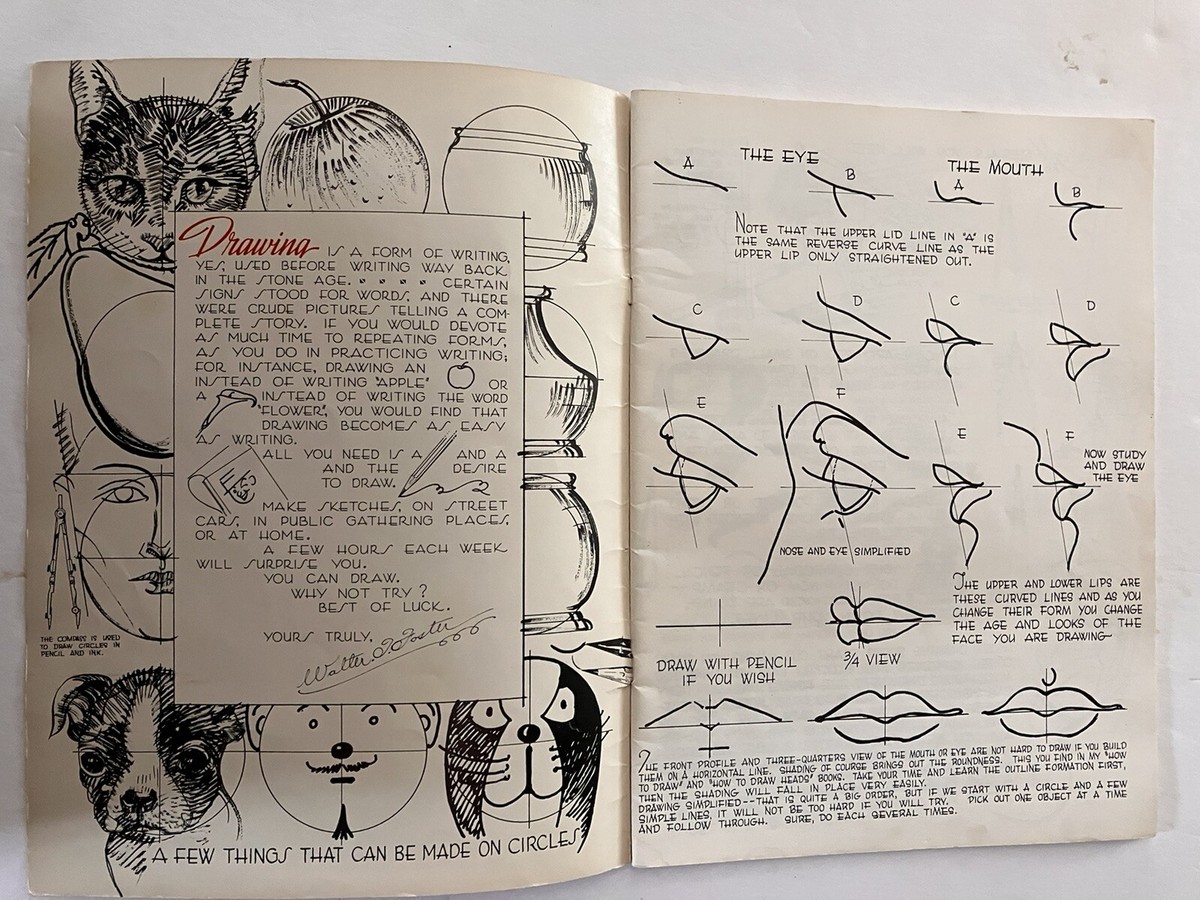 Drawing IS A FORM OF WRITING,
YES, USED BEFORE WRITING WAY BACK
IN THE STONE AGE. . . . . CERTAIN
SIGNS STOOD FOR WORDS, AND THERE
WERE CRUDE PICTURES TELLING A COM-
PLETE STORY. IF YOU WOULD DEVOTE
AS MUCH TIME TO REPEATING FORMS,
AS YOU DO IN PRACTICING WRITING;
FOR INSTANCE, DRAWING AN
INSTEAD OF WRITING "APPLE" OR
A INSTEAD OF WRITING THE WORD
"FLOWER", YOU WOULD FIND THAT
DRAWING BECOMES AS EASY
AS WRITING.
ALL YOU NEED IS A AND A
AND THE DESIRE
TO DRAW.
MAKE SKETCHES, ON STREET
CARS, IN PUBLIC GATHERING PLACES,
OR AT HOME.
A FEW HOURS EACH WEEK
WILL SURPRISE YOU.
YOU CAN DRAW.
WHY NOT TRY?
BEST OF LUCK.
YOURS TRULY,
Walter T. Foster
THE COMPASS IS USED
TO DRAW CIRCLES IN
PENCIL AND INK.
A FEW THINGS THAT CAN BE MADE ON CIRCLES
THE EYE
A
B
THE MOUTH
A
B
NOTE THAT THE UPPER LID LINE IN "A" IS
THE SAME REVERSE CURVE LINE AS THE
UPPER LIP ONLY STRAIGHTENED OUT.
C
D
C
D
E
F
E
F
NOW STUDY
AND DRAW
THE EYE
NOSE AND EYE SIMPLIFIED
THE UPPER AND LOWER LIPS ARE
THESE CURVED LINES AND AS YOU
CHANGE THEIR FORM YOU CHANGE
THE AGE AND LOOKS OF THE
FACE YOU ARE DRAWING~
DRAW WITH PENCIL
IF YOU WISH
3/4 VIEW
THE FRONT PROFILE AND THREE-QUARTERS VIEW OF THE MOUTH OR EYE ARE NOT HARD TO DRAW IF YOU BUILD
THEM ON A HORIZONTAL LINE. SHADING OF COURSE BRINGS OUT THE ROUNDNESS. THIS YOU FIND IN MY "HOW
TO DRAW" AND "HOW TO DRAW HEADS" BOOKS. TAKE YOUR TIME AND LEARN THE OUTLINE FORMATION FIRST,
THEN THE SHADING WILL FALL IN PLACE VERY EASILY.
DRAWING SIMPLIFIED--THAT IS QUITE A BIG ORDER, BUT IF WE START WITH A CIRCLE AND A FEW
SIMPLE LINES, IT WILL NOT BE TOO HARD IF YOU WILL TRY. PICK OUT ONE OBJECT AT A TIME
AND FOLLOW THROUGH. SURE, DO EACH SEVERAL TIMES.